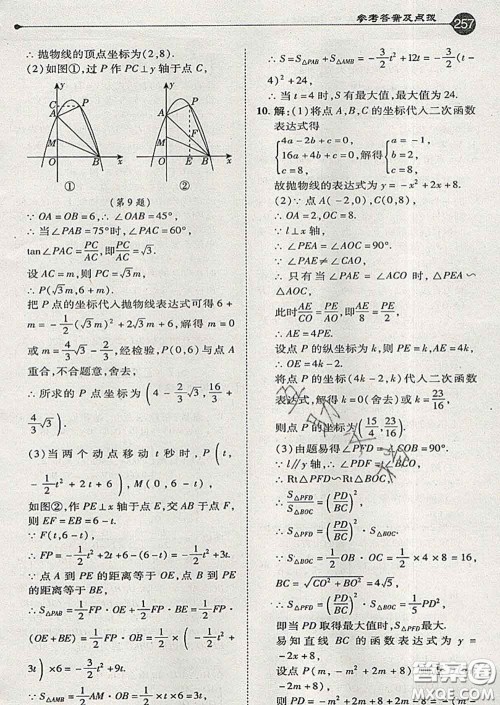 参考答案及点拨 257
∴ 抛物线的顶点坐标为(2,8).
(2)如图①,过 P 作 PC⊥y 轴于点 C,
y
C P
A
M
O B x
①
y
A P
F
M
O E B x
②
(第 9 题)
∵ OA = OB = 6,∴ ∠OAB = 45°,
∴ 当 ∠PAB = 75°时,∠PAC = 60°,
tan∠PAC = PC/AC,即 PC/AC = √3.
设 AC = m,则 PC = √3m,
∴ P(√3m,6 + m).
把 P 点的坐标代入抛物线表达式可得 6 +
m = -1/2(√3m)² + 2√3m + 6,解得 m = 0
或 m = 4/3√3 - 2/3,经检验,P(0,6)与点 A
重合,不合题意,舍去;
∴ 所求的 P 点坐标为(4 - 2/3√3,16/3 +
4/3√3).
(3)当两个动点移动 t 秒时,P(t,
-1/2t² + 2t + 6),M(0,t).
如图②,作 PE⊥x 轴于点 E,交 AB 于点 F,
则 EF = EB = 6 - t.
∴ F(t,6 - t),
∴ FP = -1/2t² + 2t + 6 - (6 - t) = -1/2t² + 3t.
∵ 点 A 到 PE 的距离等于 OE,点 B 到 PE
的距离等于 BE,
∴ S△PAB = 1/2FP·OE + 1/2FP·BE = 1/2FP·
(OE + BE) = 1/2FP·OB = 1/2 × (-1/2t² +
3t) × 6 = -3/2t² + 9t.
∵ S△AMB = 1/2AM·OB = 1/2 × (6 - t) × 6 =
∴ S = S△PAB + S△AMB = -3/2t² + 12t = -3/2(t -
4)² + 24,
∴ 当 t = 4 时,S 有最大值,最大值为 24.
10. 解:(1)将点 A,B,C 的坐标代入二次函数
表达式得
{4a - 2b + c = 0, 16a + 4b + c = 0, c = 8, 解得 {a = -1, b = 2, c = 8,
故抛物线的表达式为 y = -x² + 2x + 8.
(2)∵ 点 A( -2,0),C(0,8),
∴ OA = 2,OC = 8.
∵ l⊥x 轴,
∴ ∠PEA = ∠AOC = 90°.
∵ ∠PAE ≠ ∠CAO,
∴ 只有当 ∠PAE = ∠ACO 时,△PEA ∽
△AOC,
此时 AE/CO = PE/AO,即 AE/8 = PE/2,
∴ AE = 4PE.
设点 P 的纵坐标为 k,则 PE = k,AE = 4k,
将点 P 的坐标(4k - 2,k)代入二次函数
表达式,解得 k = 0(舍去)或 k = 23/16,
则点 P 的坐标为(15/4,23/16).
(3)由题易得∠PFD = ∠COB = 90°.
∵ l∥y 轴,
∴ Rt△PFD ∽ Rt△BOC.
∴ S△PFD/S△BOC = (PD/BC)²,
∴ S△PFD = (PD/BC)²·S△BOC.
∵ S△BOC = 1/2OB·OC = 1/2 × 4 × 8 = 16,
BC = √(CO² + BO²) = 4√5,
∴ S△PFD = (PD/BC)²·S△BOC = 1/5PD²,
即当 PD 取得最大值时,S△PFD 最大.
易知直线 BC 的函数表达式为 y =
-2x + 8,
设点 P(m, -m² + 2m + 8),则点 D(m,
答案圈
MXQE.COM